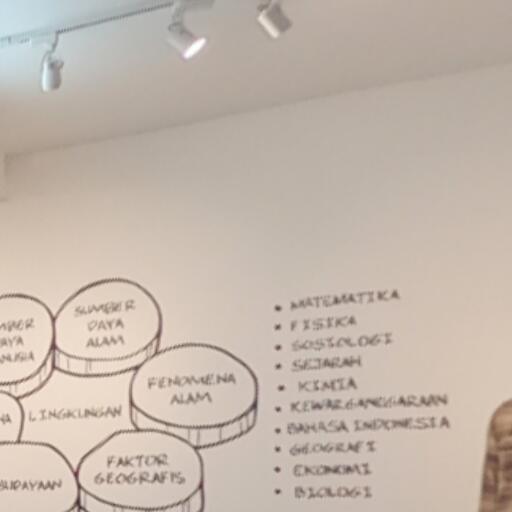 SUMBER
DAYA
ALAM
FENOMENA
ALAM
LINGKUNGAN
FAKTOR
GEOGRAFIS
• MATEMATIKA
• FISIKA
• SOSIOLOGI
• SEJARAH
• KIMIA
• KEWARGANEGARAAN
• BAHASA INDONESIA
• GEOGRAFI
• EKONOMI
• BIOLOGI